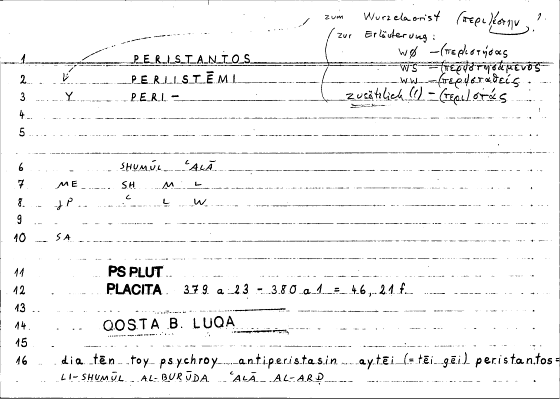 zum Wurzelaorist (περι)έστην ?
zur Erläuterung:
WØ - (περι)στήσας
WS - (περι)στησάμενος
WW - (περι)σταθείς
zusätzlich (!) - (περι)στάς
1 PERISTANTOS
2 PERIISTĒMI
3 Y PERI -
4
5
6 SHUMŪL ʿALĀ
7 ME SH M L
8 JP ʿ L W
9
10 SA
11 PS PLUT
12 PLACITA 379 a 23 - 380 a 1 = 46, 21 f.
13
14 QOSTA B. LUQA
15
16 dia tēn toy psychroy antiperistasin aytēi (= tēi gēi) peristantos=
LI-SHUMŪL AL-BURŪDA ʿALĀ AL-ARD